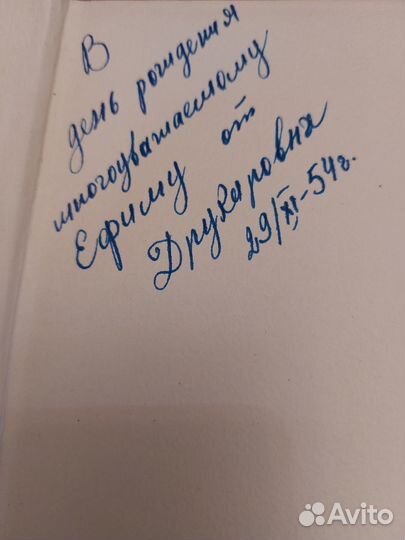 В
день рождения
многоуважаемому
Ефиму от
Друкаровна
29/XI-54г.
Avito